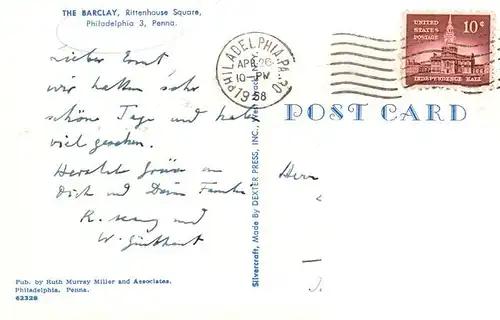 THE BARCLAY, Rittenhouse Square,
Philadelphia 3, Penna.
Lieber Ernst
wir hatten sehr
schöne Tage und haben
viel gesehen.
Herzliche Grüße an
Dich und Deine Familie
K. und
W.
PHILADELPHIA, PA.
APR 26
10 - PM
1958
UNITED STATES POSTAGE
10¢
INDEPENDENCE HALL
POST CARD
Herrn
Silvercraft, Made By DEXTER PRESS, INC., West Nyack, N.Y.
Pub. by Ruth Murray Miller and Associates,
Philadelphia, Penna.
62328